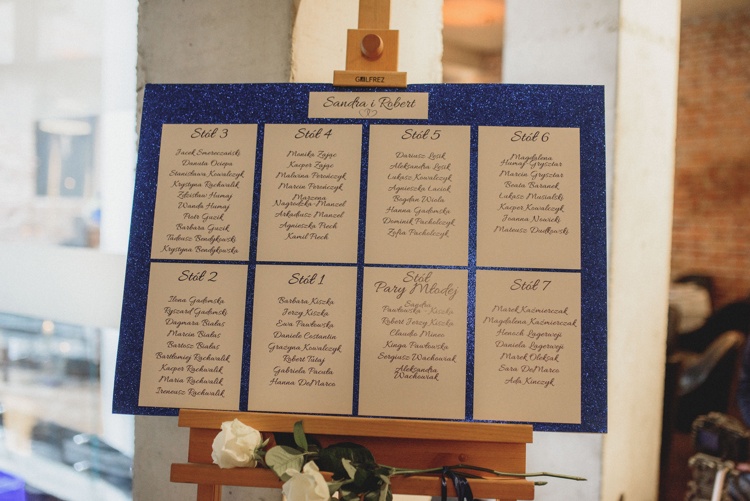 GOLFREZ
Sandra i Robert
Stół 3
Jacek Smereczański
Danuta Ociepa
Stanisława Kowalczyk
Krystyna Rachwalik
Zdzisław Hamaj
Wanda Hamaj
Piotr Guzik
Barbara Guzik
Tadeusz Bondykowski
Krystyna Bondykowska
Stół 4
Monika Zając
Kacper Zając
Malwina Pereńczyk
Marcin Pereńczyk
Marzena
Nagrodzka-Manzel
Arkadiusz Manzel
Agnieszka Piech
Kamil Piech
Stół 5
Dariusz Lysik
Aleksandra Lysik
Łukasz Kowalczyk
Agnieszka Łaciak
Bogdan Wiola
Hanna Gadomska
Dominik Pacholczyk
Zofia Pacholczyk
Stół 6
Magdalena
Hamaj-Grysztar
Marcin Grysztar
Beata Baranek
Łukasz Musialski
Kacper Kowalczyk
Joanna Nowicki
Mateusz Dudkowski
Stół 2
Ilona Gadomska
Ryszard Gadomski
Dagmara Białas
Marcin Białas
Bartosz Białas
Bartłomiej Rachwalik
Kacper Rachwalik
Maria Rachwalik
Ireneusz Rachwalik
Stół 1
Barbara Kiszka
Jerzy Kiszka
Ewa Pawłowska
Daniele Costantin
Gracyna Kowalczyk
Robert Tutaj
Gabriela Pacuła
Hanna DeMarco
Stół
Pary Młodej
Sandra
Pawłowska - Kiszka
Robert Jerzy Kiszka
Claudio Mineo
Kinga Pawłowska
Sergiusz Wachowiak
Aleksandra
Wachowiak
Stół 7
Marek Kaźmierczak
Magdalena Kaźmierczak
Henoch Lagerwejj
Daniela Lagerwejj
Marek Oleksak
Sara DeMarco
Ada Kinczyk